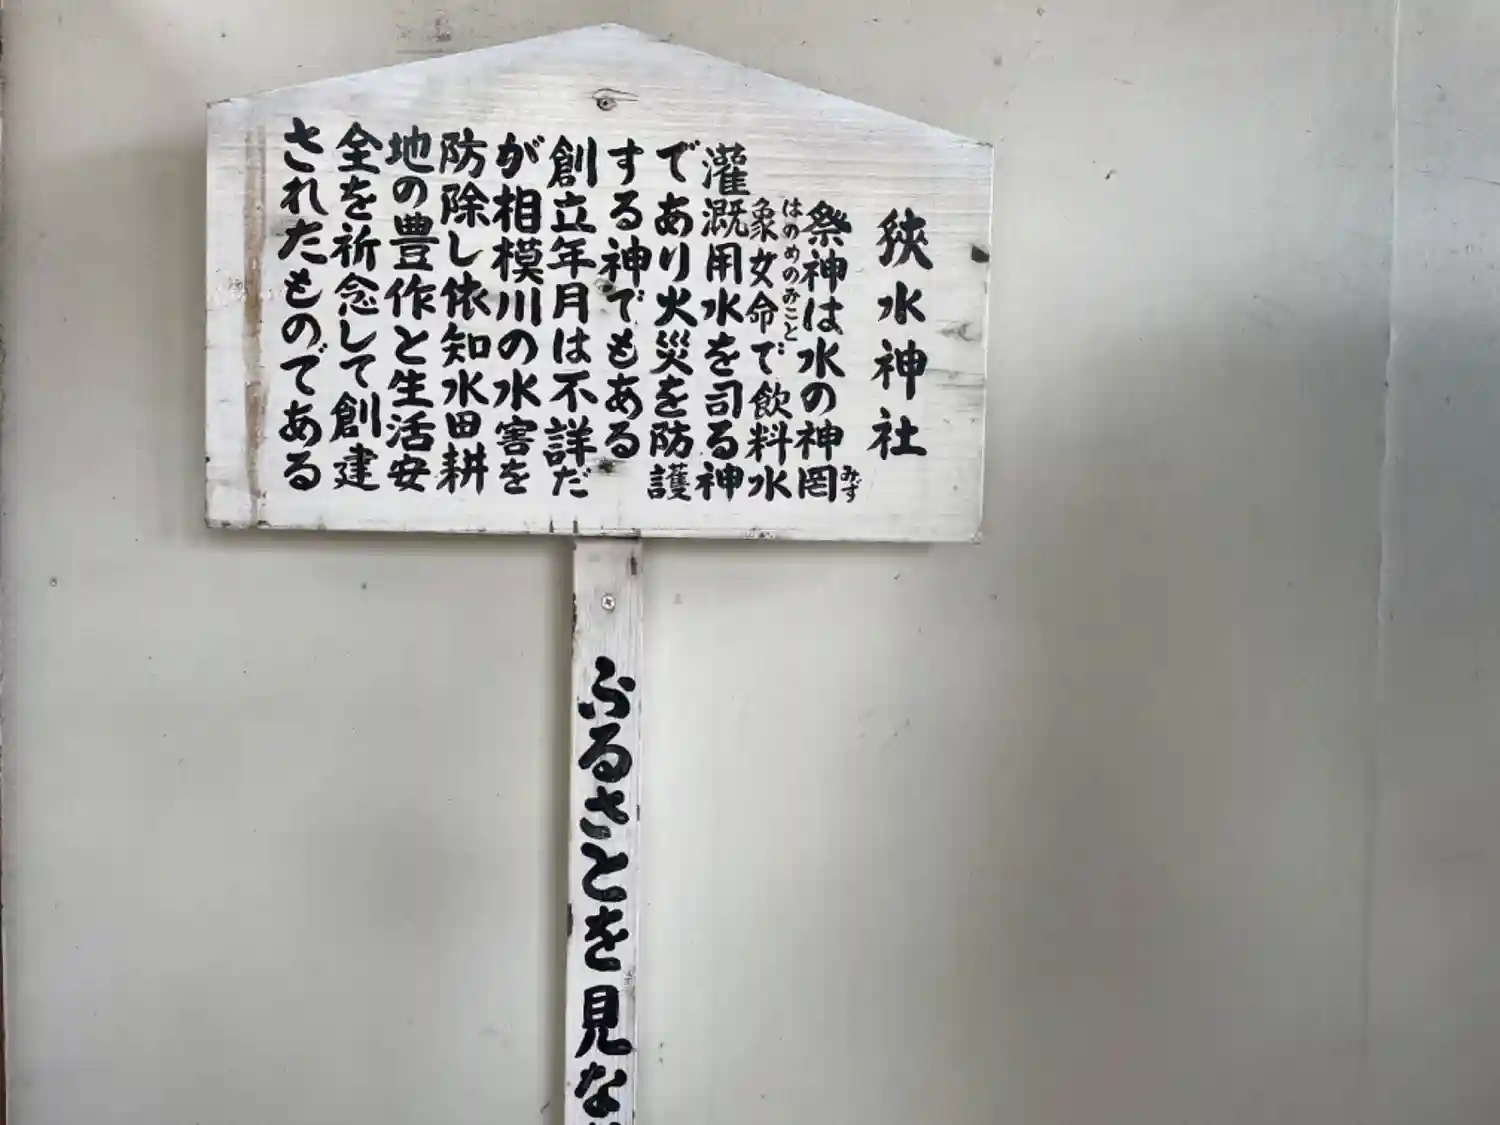 狹水神社
祭神は水の神罔
みず
象女命で飲料水
はのめのみこと
灌漑用水を司る神
であり火災を防護
する神でもある
創立年月は不詳だ
が相模川の水害を
防除し依知水田耕
地の豊作と生活安
全を祈念して創建
されたものである
ふるさとを見な